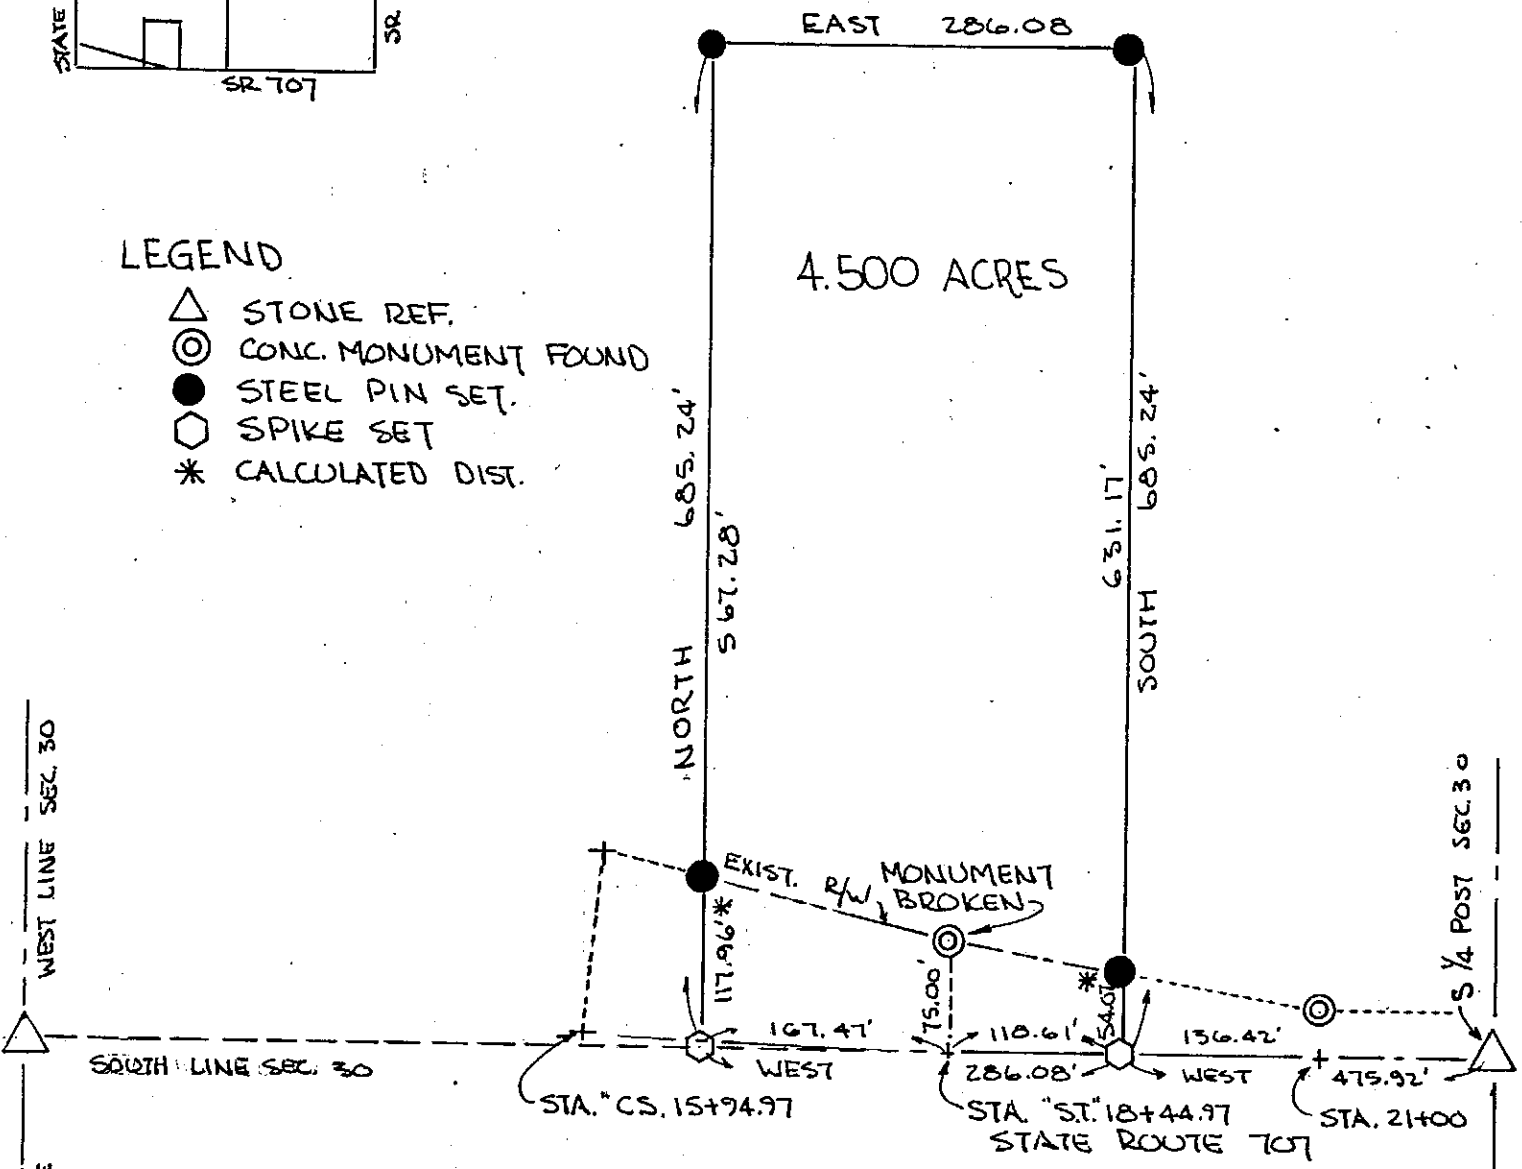 STATE
SR
SR 707
EAST 286.08
LEGEND
STONE REF.
CONC. MONUMENT FOUND
STEEL PIN SET.
SPIKE SET
* CALCULATED DIST.
4.500 ACRES
NORTH 685.24'
567.28'
631.17'
SOUTH 685.24'
WEST LINE SEC. 30
S 1/4 POST SEC. 30
EXIST. R/W
MONUMENT
BROKEN
117.96'*
75.00'
* 54.07
167.47'
118.61'
136.42'
WEST
286.08'
WEST
475.92'
SOUTH LINE SEC. 30
STA. "CS. 15+94.97
STA. "S.T." 18+44.97
STA. 21+00
STATE ROUTE 707